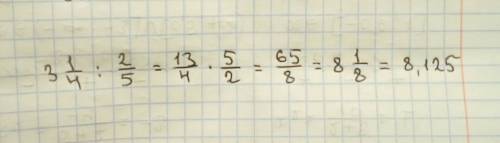 3 1/4 : 2/5 = 13/4 · 5/2 = 65/8 = 8 1/8 = 8,125